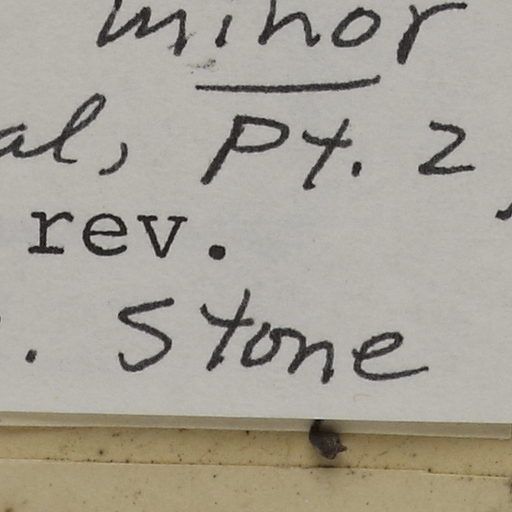 minor
al, Pt. 2,
rev.
. Stone